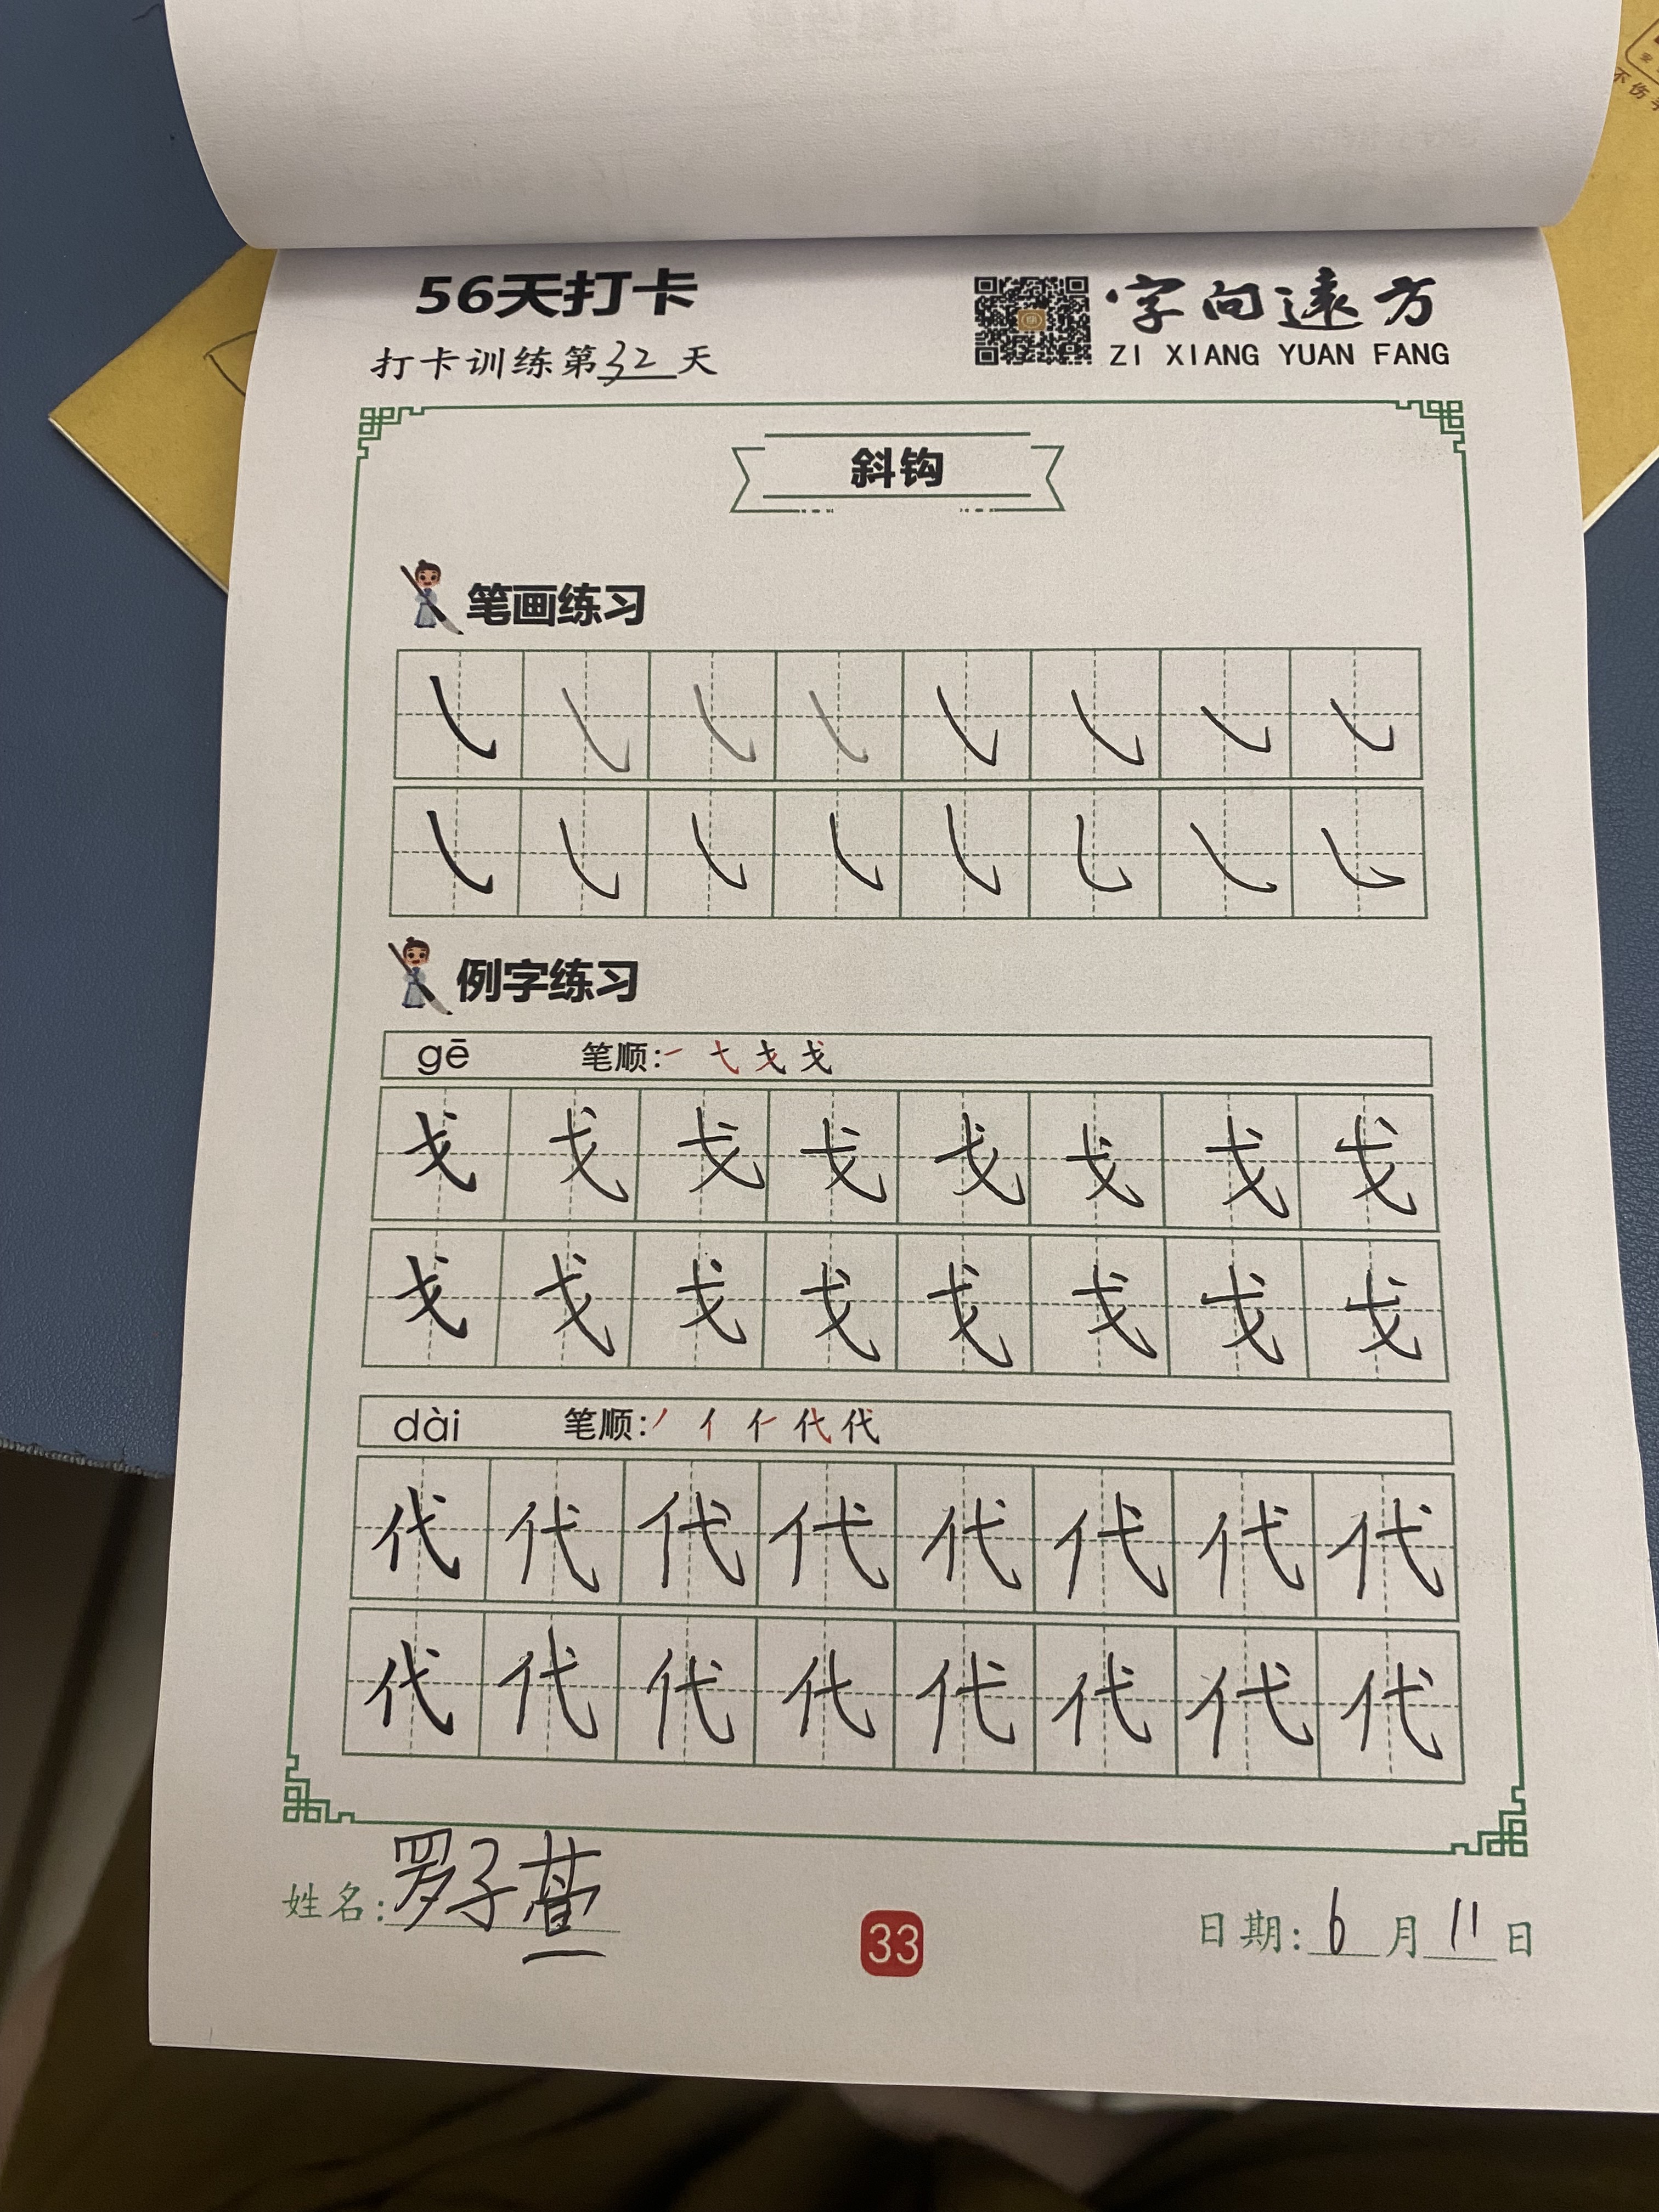 56天打卡
字向遠方
ZI XIANG YUAN FANG
打卡训练第32天
斜钩
笔画练习
㇂ ㇂ ㇂ ㇂ ㇂ ㇂ ㇂ ㇂
㇂ ㇂ ㇂ ㇂ ㇂ ㇂ ㇂ ㇂
例字练习
gē 笔顺:一 弋 戈 戈
戈 戈 戈 戈 戈 戈 戈 戈
戈 戈 戈 戈 戈 戈 戈 戈
dài 笔顺:丿 亻 仁 代 代
代 代 代 代 代 代 代 代
代 代 代 代 代 代 代 代
姓名:罗子萱
33
日期:6月11日
不伤手